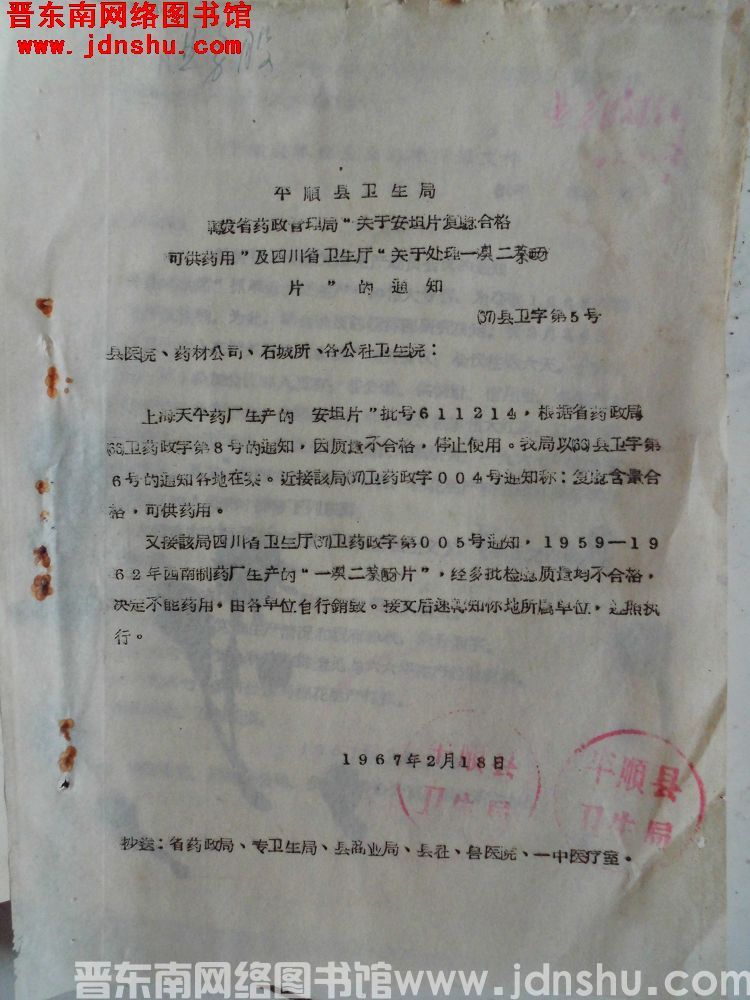 晋东南网络图书馆
www.jdnshu.com
平顺县卫生局
转发省药政管理局“关于安坦片复验合格
可供药用”及四川省卫生厅“关于处理一溴二萘酚
片”的通知
(67)县卫字第5号
县医院、药材公司、石城所、各公社卫生院：
上海天平药厂生产的 安坦片”批号611214，根据省药政局
(66)卫药政字第8号的通知，因质量不合格，停止使用。我局以(66)县卫字第
6号的通知各地在案。近接該局(67)卫药政字004号通知称：复验含量合
格，可供药用。
又接該局四川省卫生厅(67)卫药政字第005号通知，1959—19
62年西南制药厂生产的“一溴二萘酚片”，经多批检验质量均不合格，
决定不能药用，由各单位自行銷毁。接文后速轉知你地所属单位，遵照执
行。
1967年2月18日
平顺县
卫生局
平顺县
卫生局
抄送：省药政局、专卫生局、县商业局、县社、兽医院、一中医疗室。
晋东南网络图书馆www.jdnshu.com